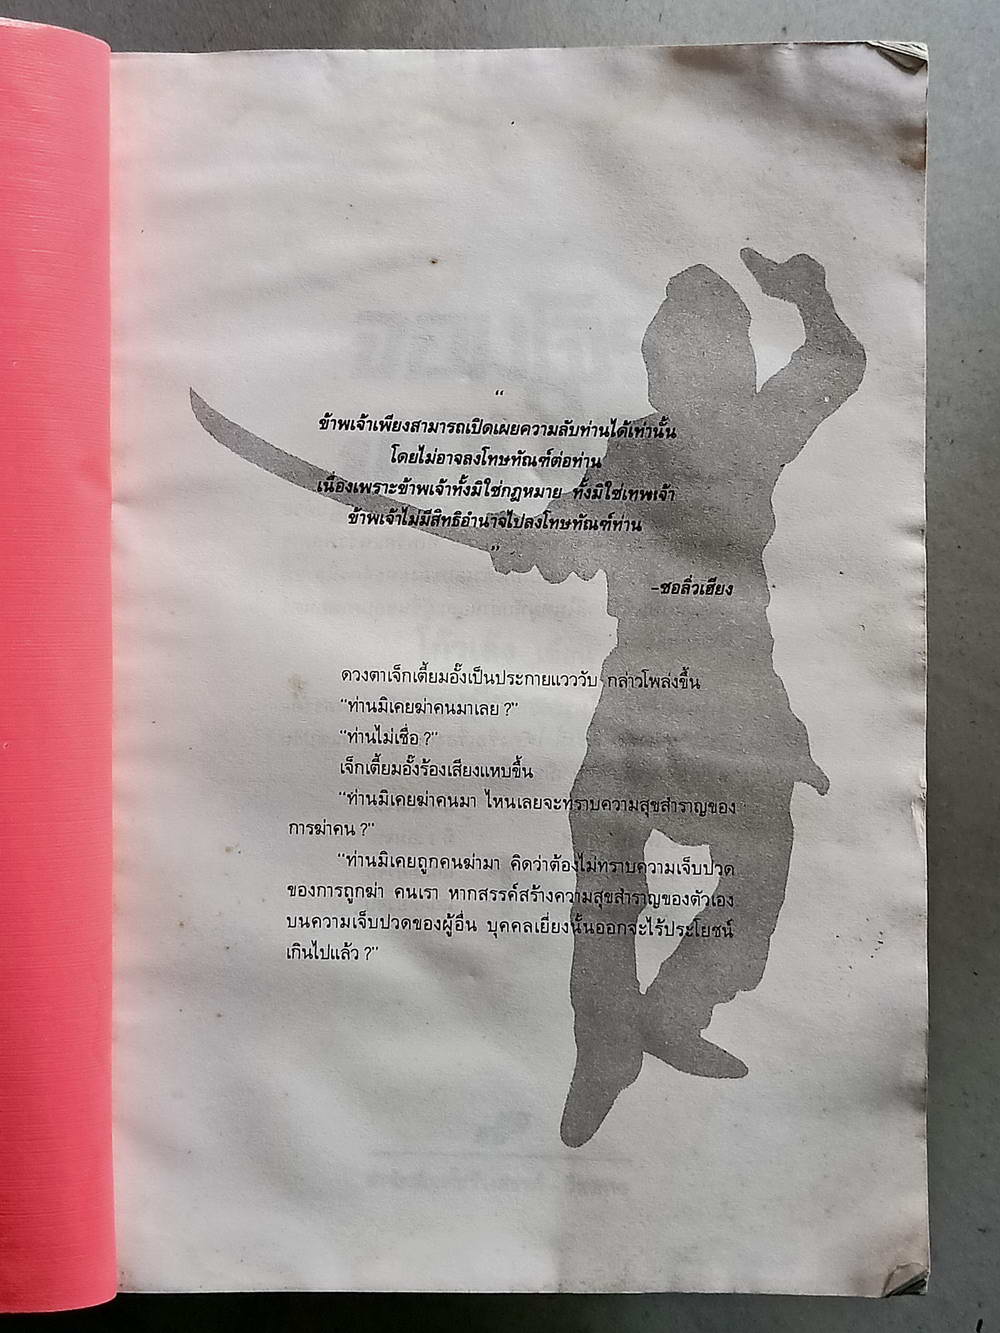 “
ข้าพเจ้าเพียงสามารถเปิดเผยความลับท่านได้เท่านั้น
โดยไม่อาจลงโทษทัณฑ์ต่อท่าน
เนื่องเพราะข้าพเจ้าทั้งมิใช่กฎหมาย ทั้งมิใช่เทพเจ้า
ข้าพเจ้าไม่มีสิทธิอำนาจไปลงโทษทัณฑ์ท่าน
”
-ชอลิ่วเฮียง
ดวงตาเจ็กเตี้ยมอั๊งเป็นประกายแวววับ กล่าวโพล่งขึ้น
“ท่านมิเคยฆ่าคนมาเลย ?”
“ท่านไม่เชื่อ ?”
เจ็กเตี้ยมอั๊งร้องเสียงแหบขึ้น
“ท่านมิเคยฆ่าคนมา ไหนเลยจะทราบความสุขสำราญของ
การฆ่าคน ?”
“ท่านมิเคยถูกคนฆ่ามา คิดว่าต้องไม่ทราบความเจ็บปวด
ของการถูกฆ่า คนเรา หากสรรค์สร้างความสุขสำราญของตัวเอง
บนความเจ็บปวดของผู้อื่น บุคคลเยี่ยงนั้นออกจะไร้ประโยชน์
เกินไปแล้ว ?”